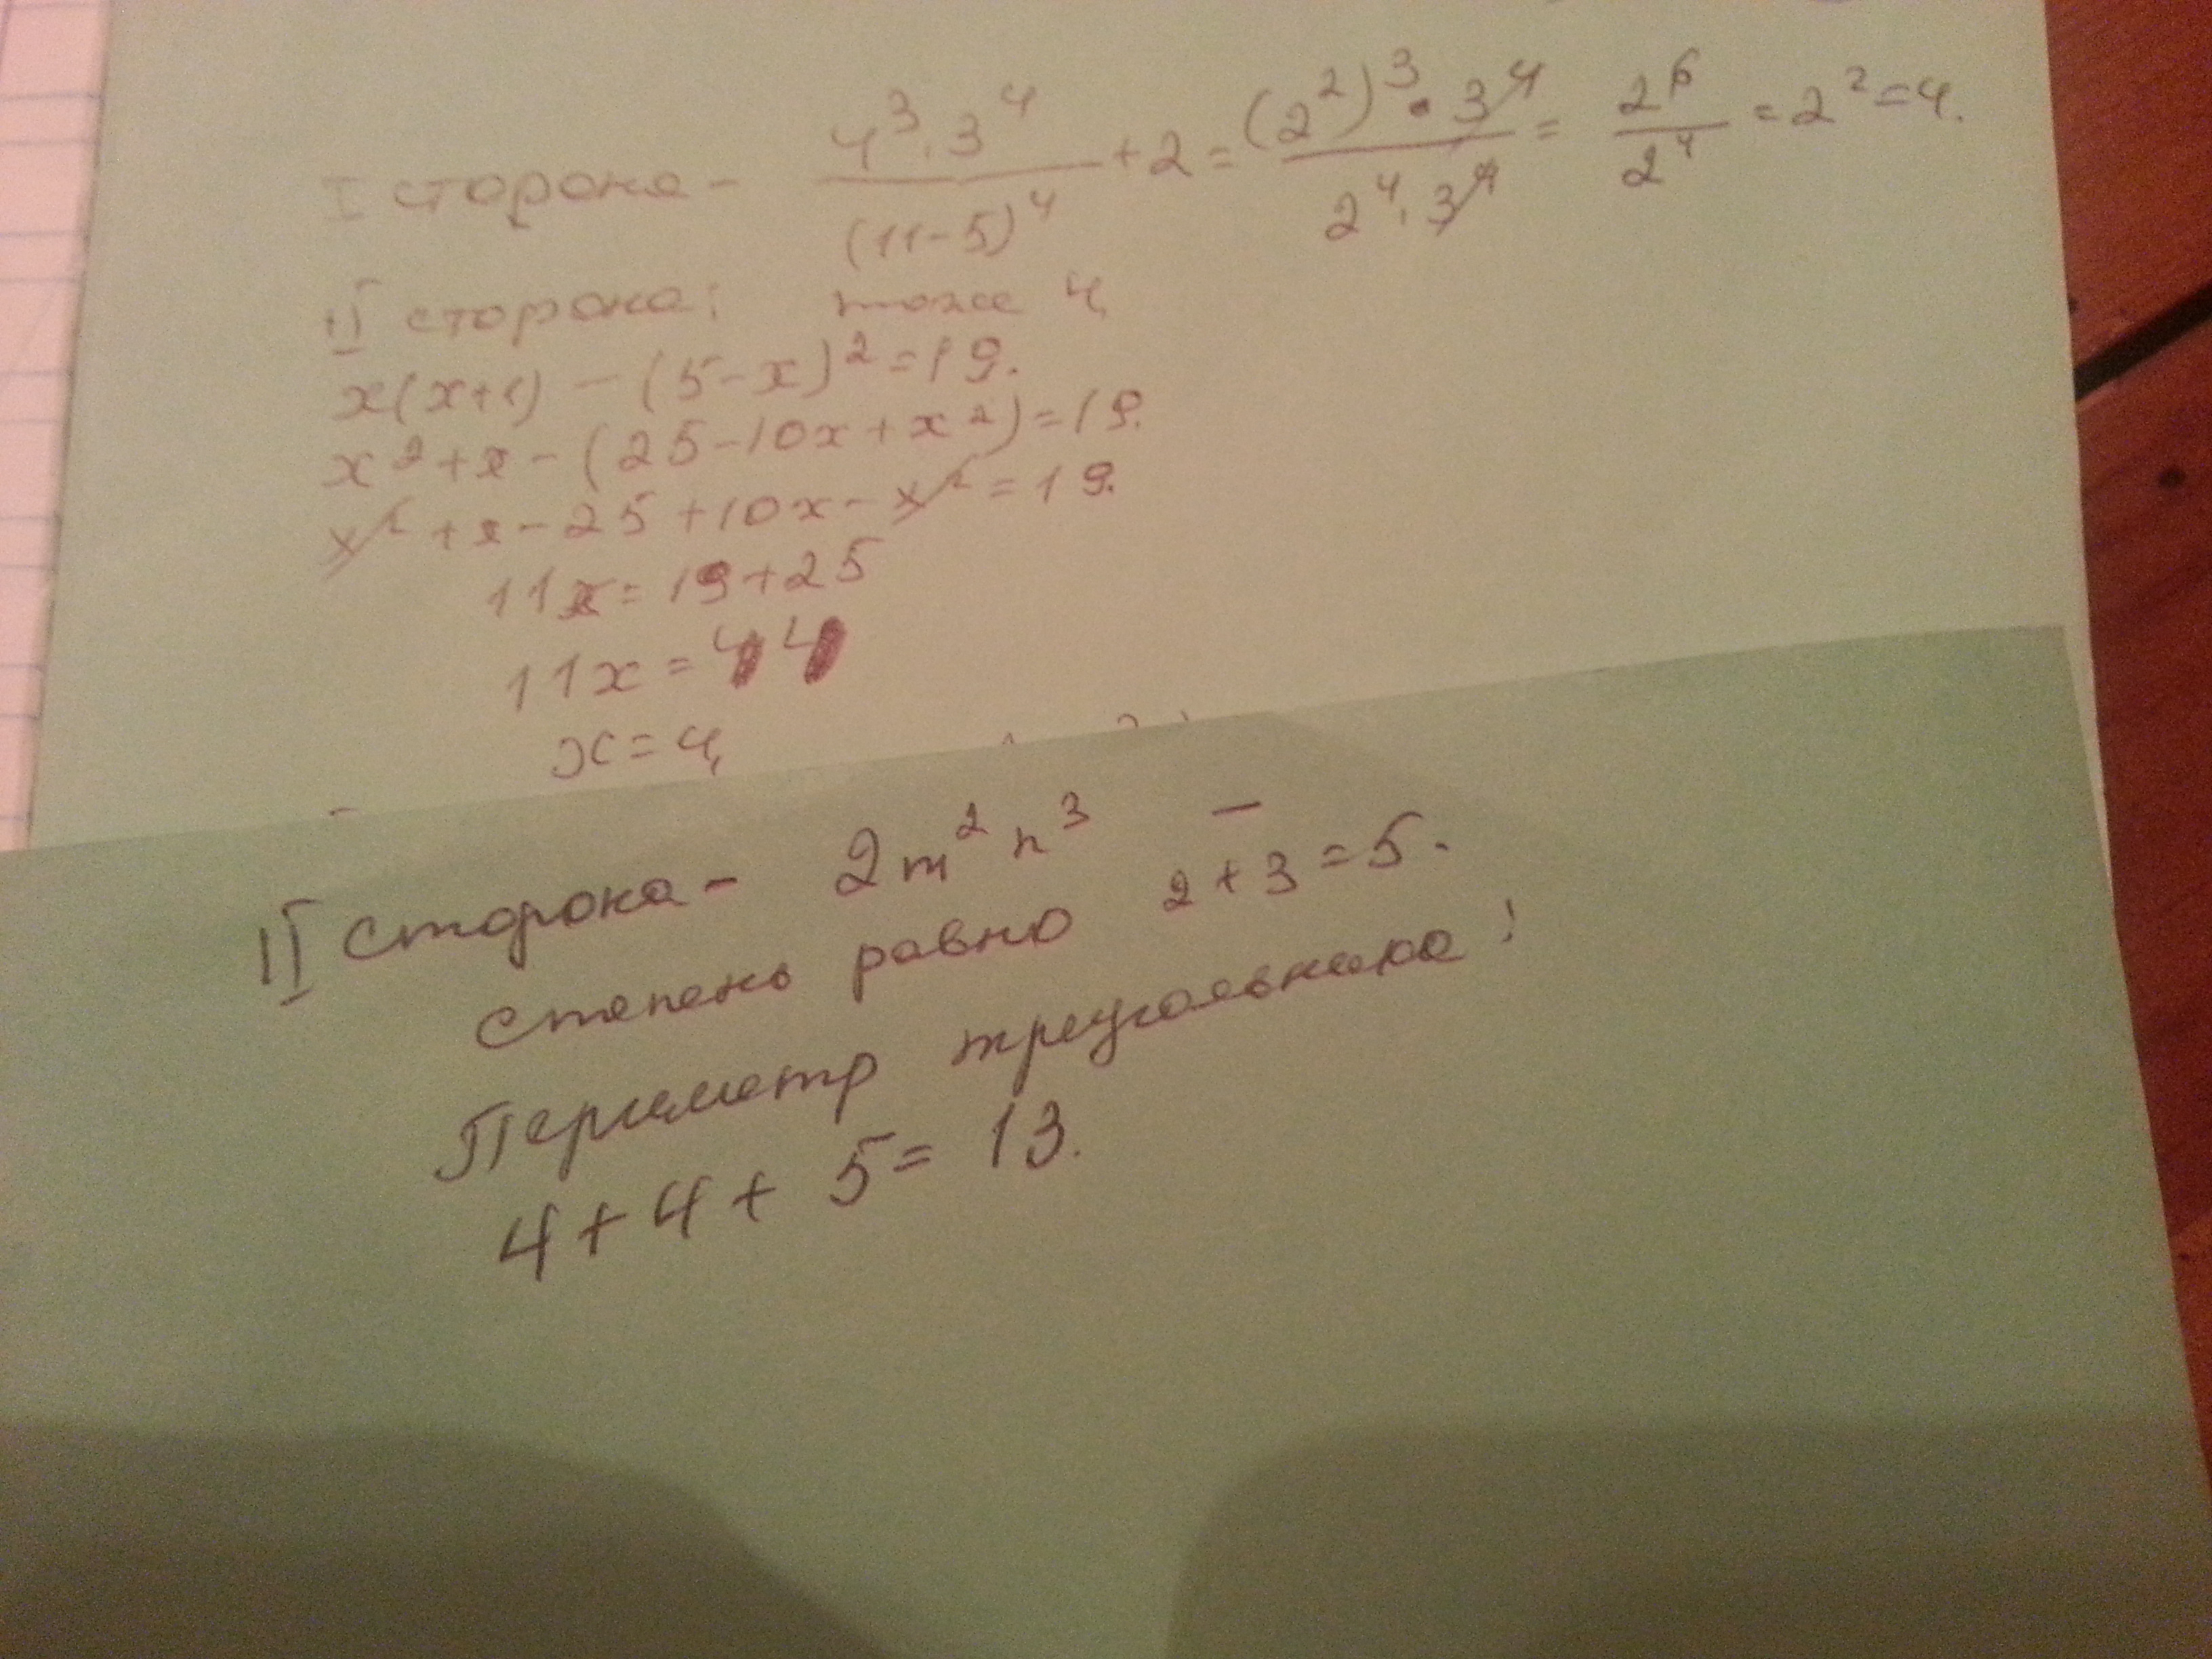 I сторона - 4³·3⁴/(11-5)⁴ + 2 = (2²)³·3⁴/2⁴·3⁴ = 2⁶/2⁴ = 2² = 4.
II сторона: тоже 4
x(x+1) - (5-x)² = 19.
x² + x - (25 - 10x + x²) = 19.
x² + x - 25 + 10x - x² = 19.
11x = 19 + 25
11x = 44
x = 4,
II сторона - 2m²n³ -
степень равно 2 + 3 = 5.
Периметр треугольника:
4 + 4 + 5 = 13.